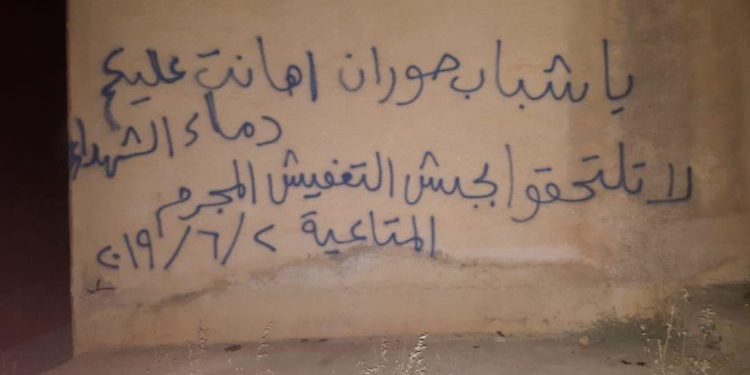 يا شباب حوران اهانت عليكم
دماء الشهداء
لا تلتحقوا بجيش التعفيش المجرم
المتاعية ٢/٦/٢٠١٩